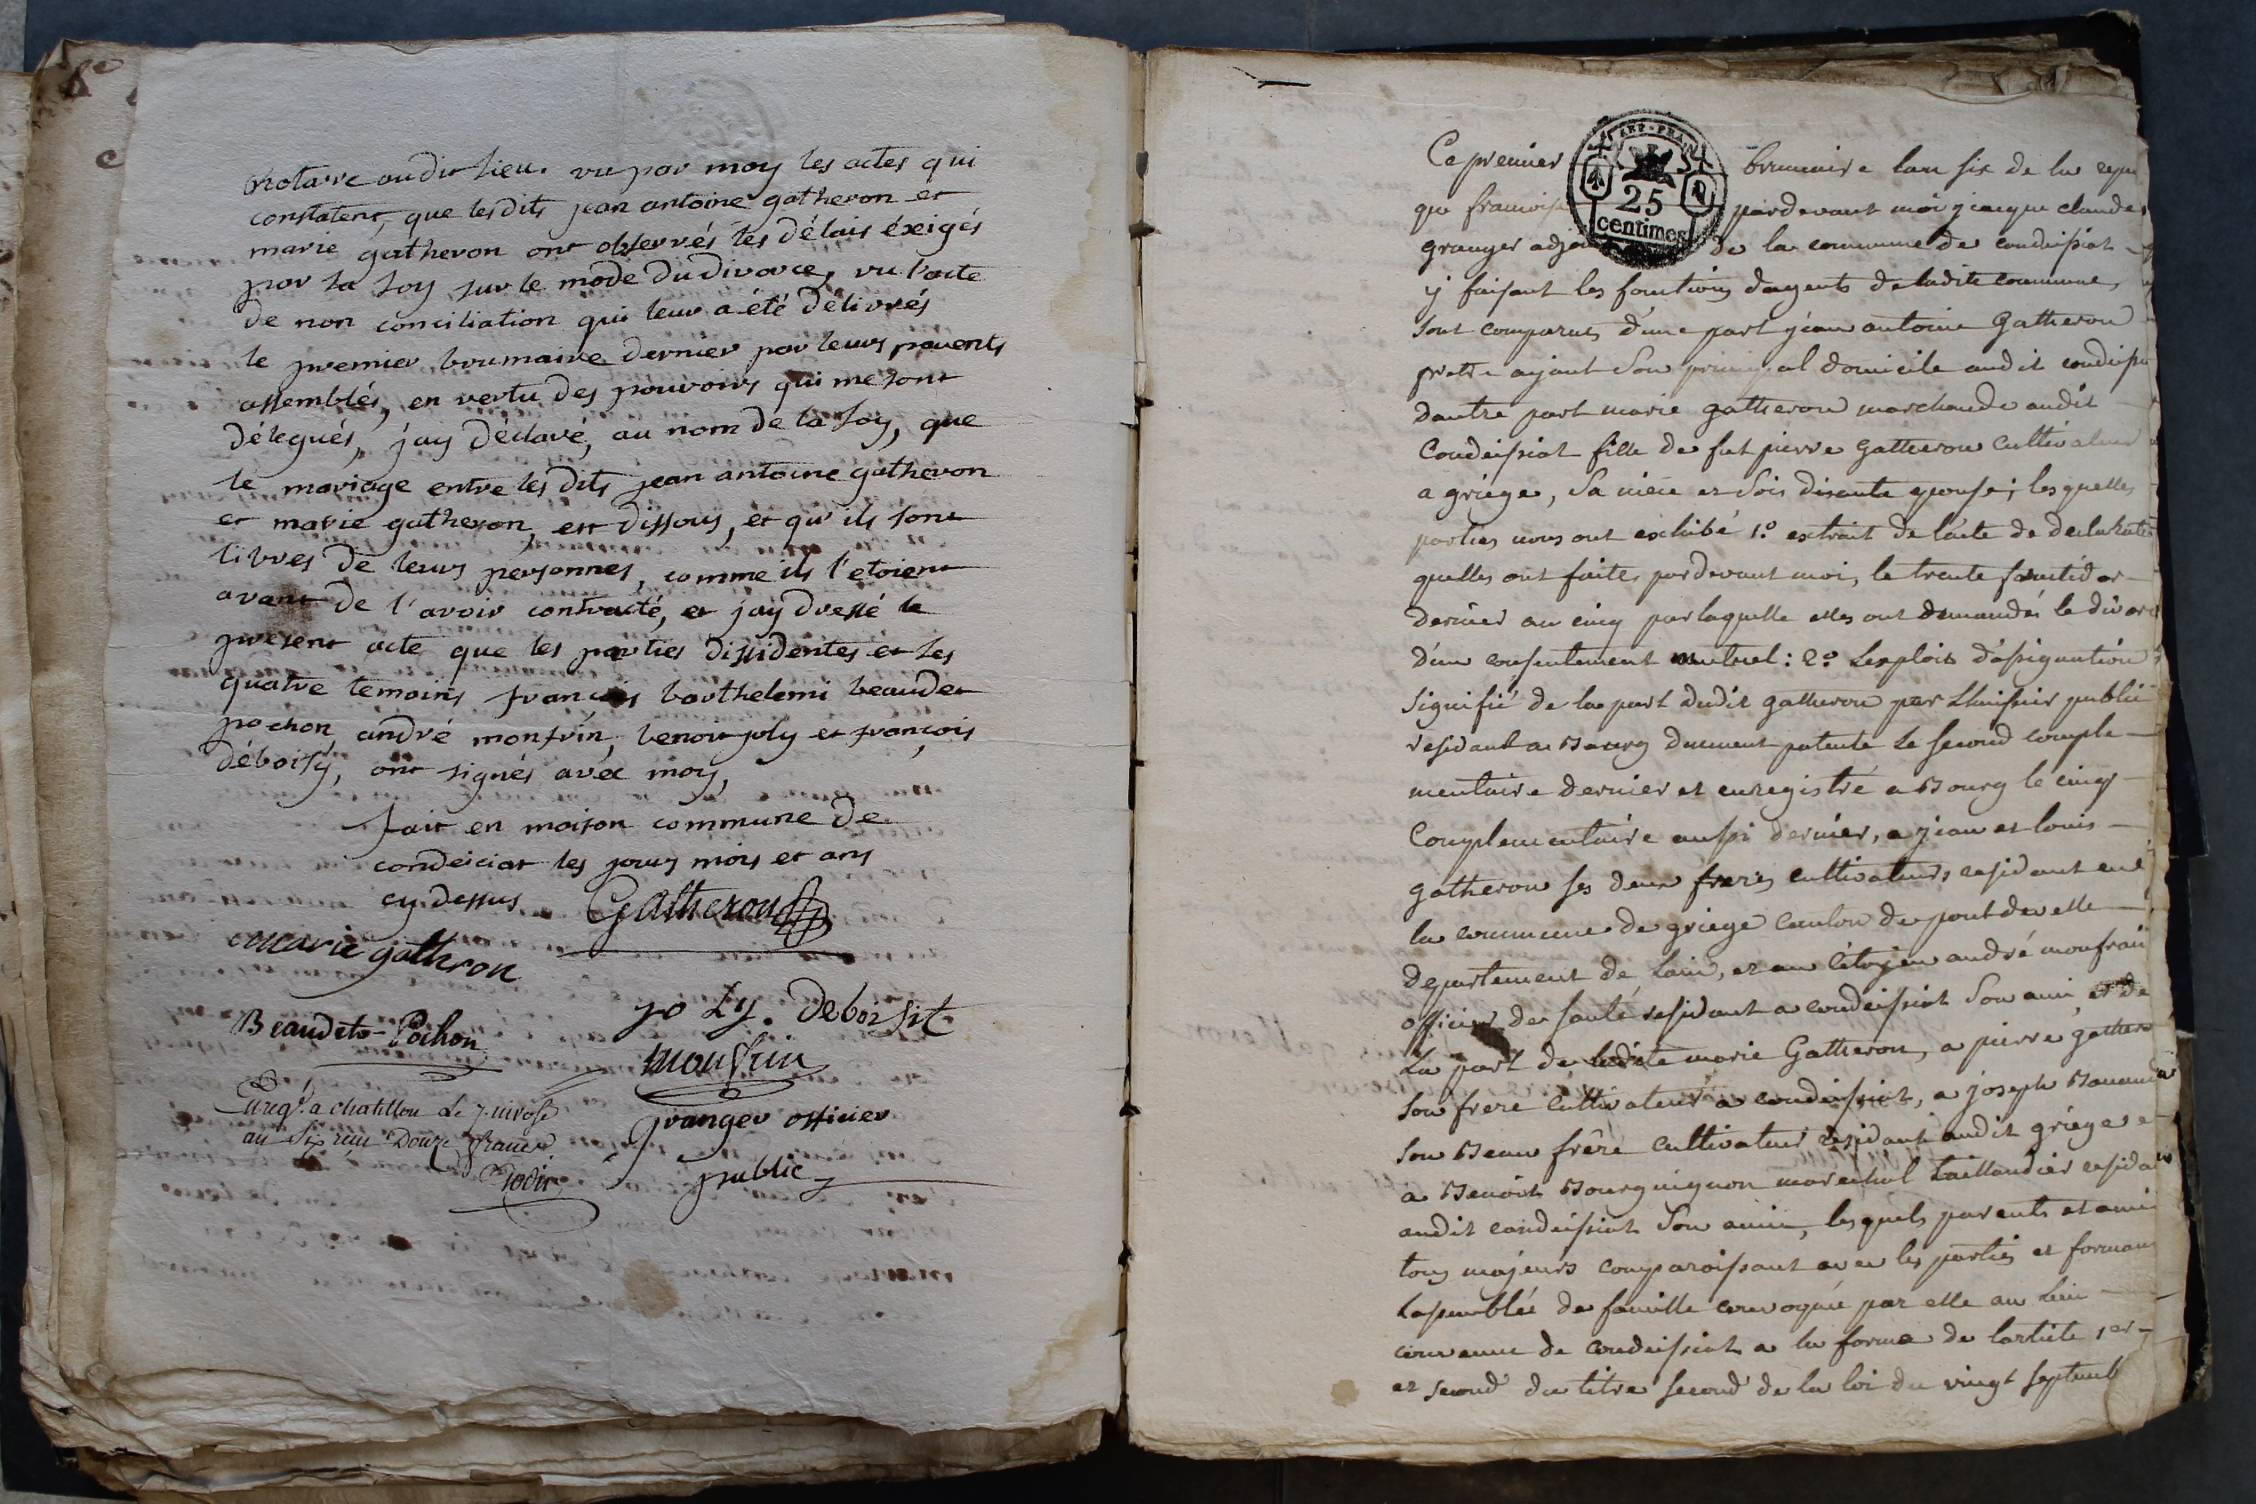 notaire audit lieu. vu par moy les actes qui
constatent, que lesdits jean antoine gatheron et
marie gatheron ont observés les délais éxigés
par la loy sur le mode du divorce, vu l'acte
de non conciliation qui leur a été délivrés
le premier brumaire dernier par leurs parents
assemblés, en vertu des pouvoirs qui me sont
délegués, j'ay déclaré, au nom de la loy, que
le mariage entre lesdits jean antoine gatheron
et marie gatheron, est dissous, et qu'ils sont
libres de leurs personnes, comme ils l'etoient
avant de l'avoir contracté, et j'ay dressé le
present acte que les parties dissidentes et les
quatre temoins françois barthelemi beaudet
pochon, andré monfrin, benoit joly et françois
déboisy, ont signés avec moy,
fait en maison commune de
condeiciat les jours mois et ans
cy dessus Gatheron
marie gathron
Beaudet-Pochon
joly. Deboissit
monfrin
granger officier
public
Enregt. a chatillon le 7 nivose
an six reçu Douze francs
Ce premier brumaire lan six de la repu
que francoise pardevant moi jacque claude
granger adjo de la commune de condeissiat
REP. FRA
25
centimes
y faisant les fonctions dagents de ladite commune,
sont comparus d'une part jean antoine Gatheron
prettre ajant son principal domicile audit condeissi
dautre part marie gatheron marchande audit
Condeissiat fille de fut pierre gatheron cultivateur
a griege, sa niece et soit disante epouse; lesquelles
parties nous ont exhibé 1.° extrait de lacte de declarati
quelles ont faites pardevant moi, le trente fructidor
dernier an cinq par laquelle elles ont demandés le divor
d'un consentement mutuel: 2.° Lexploit d'assignation
signifié de la part dudit gatheron par Lhuissier public
residant a Bourg dument patenté le second comple
mentaire dernier et enregistré a Bourg le cinq
Complementaire aussi dernier, a jean et louis
gatheron ses deux freres cultivateurs residant en
la commune de griege canton de pont de velle
departement de Lain, et au citoyen andré monfrain
officier de santé residant a condeissiat son ami, et de
La part de ladite marie Gatheron, a pierre gather
son frere cultivateur a condeissiat, a joseph
son Beau frêre cultivateur residant audit griéges e
a Benoit Bourguignon marechal taillandier resida
audit condeissiat son amie, lesquels parents et ami
tous majeurs comparoissant avec les parties et forman
Lassemblée de famille convoquée par elle au lieu
commune de condeissiat a la forme de larticle 1er
et second du titre second de la loi du vingt septemb